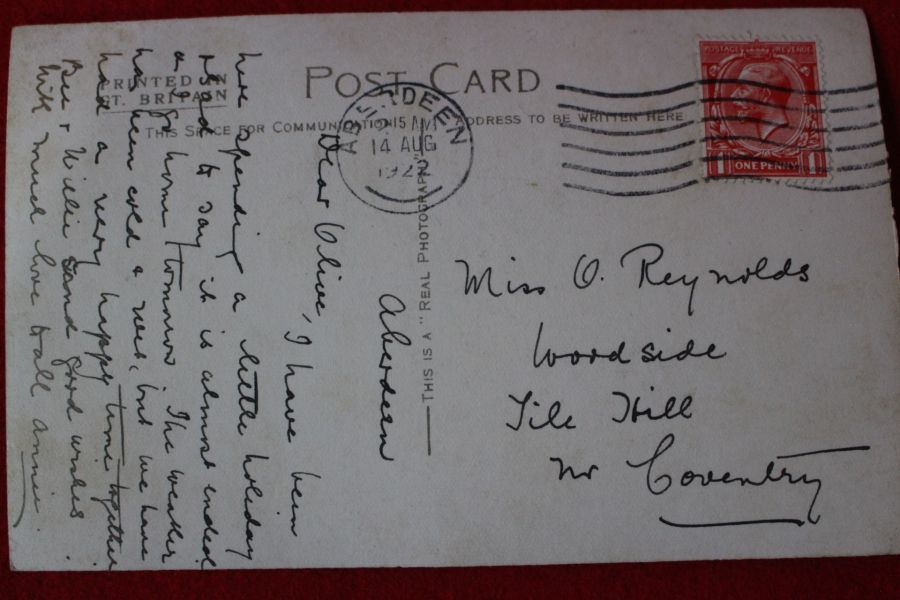 POST CARD
PRINTED IN
GT. BRITAIN
THIS SPACE FOR COMMUNICATION
ADDRESS TO BE WRITTEN HERE
THIS IS A "REAL PHOTOGRAPH"
ABERDEEN
15 AM
14 AUG
192
POSTAGE REVENUE
1 ONE PENNY 1
Miss O. Reynolds
Woodside
Tile Hill
nr Coventry
Aberdeen
Dear Olive, I have been
here spending a little holiday
to day it is almost ended
as I go home tomorrow The weather
has been cold & wet, but we have
had a very happy time together
& Willie send good wishes.
With much love to all annie.